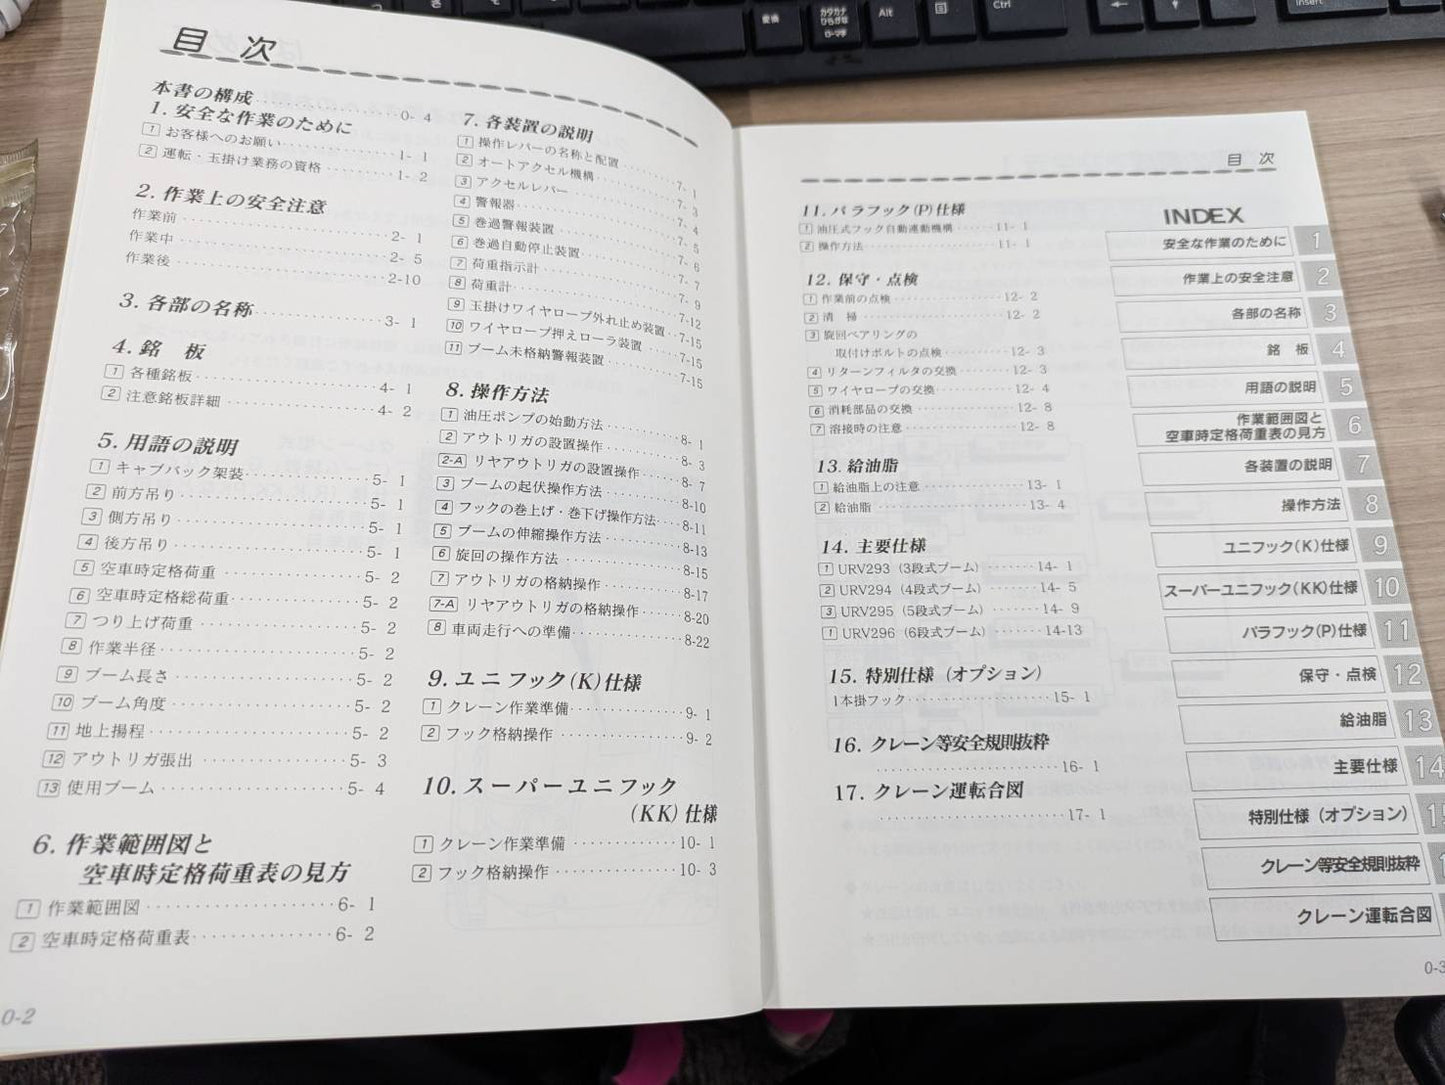 目 次
本書の構成 0- 4
1. 安全な作業のために
1 お客様へのお願い 1- 1
2 運転・玉掛け業務の資格 1- 2
2. 作業上の安全注意
作業前 2- 1
作業中 2- 5
作業後 2-10
3. 各部の名称 3- 1
4. 銘 板
1 各種銘板 4- 1
2 注意銘板詳細 4- 2
5. 用語の説明
1 キャブバック架装 5- 1
2 前方吊り 5- 1
3 側方吊り 5- 1
4 後方吊り 5- 1
5 空車時定格荷重 5- 2
6 空車時定格総荷重 5- 2
7 つり上げ荷重 5- 2
8 作業半径 5- 2
9 ブーム長さ 5- 2
10 ブーム角度 5- 2
11 地上揚程 5- 2
12 アウトリガ張出 5- 3
13 使用ブーム 5- 4
6. 作業範囲図と
空車時定格荷重表の見方
1 作業範囲図 6- 1
2 空車時定格荷重表 6- 2
0-2
7. 各装置の説明
1 操作レバーの名称と配置 7- 1
2 オートアクセル機構 7- 3
3 アクセルレバー 7- 4
4 警報器 7- 5
5 巻過警報装置 7- 6
6 巻過自動停止装置 7- 7
7 荷重指示計 7- 9
8 荷重計 7-12
9 玉掛けワイヤロープ外れ止め装置 7-15
10 ワイヤロープ押えローラ装置 7-15
11 ブーム未格納警報装置 7-15
8. 操作方法
1 油圧ポンプの始動方法 8- 1
2 アウトリガの設置操作 8- 3
2-A リヤアウトリガの設置操作 8- 7
3 ブームの起伏操作方法 8-10
4 フックの巻上げ・巻下げ操作方法 8-11
5 ブームの伸縮操作方法 8-13
6 旋回の操作方法 8-15
7 アウトリガの格納操作 8-17
7-A リヤアウトリガの格納操作 8-20
8 車両走行への準備 8-22
9. ユニフック(K)仕様
1 クレーン作業準備 9- 1
2 フック格納操作 9- 2
10. スーパーユニフック
(KK)仕様
1 クレーン作業準備 10- 1
2 フック格納操作 10- 3
目 次
11. パラフック(P)仕様
1 油圧式フック自動連動機構 11- 1
2 操作方法 11- 1
12. 保守・点検
1 作業前の点検 12- 2
2 清 掃 12- 2
3 旋回ベアリングの
取付けボルトの点検 12- 3
4 リターンフィルタの交換 12- 3
5 ワイヤロープの交換 12- 4
6 消耗部品の交換 12- 8
7 溶接時の注意 12- 8
13. 給油脂
1 給油脂上の注意 13- 1
2 給油脂 13- 4
14. 主要仕様
1 URV293（3段式ブーム） 14- 1
2 URV294（4段式ブーム） 14- 5
3 URV295（5段式ブーム） 14- 9
1 URV296（6段式ブーム） 14-13
15. 特別仕様（オプション）
1本掛フック 15- 1
16. クレーン等安全規則抜粋
16- 1
17. クレーン運転合図
17- 1
INDEX
安全な作業のために 1
作業上の安全注意 2
各部の名称 3
銘 板 4
用語の説明 5
作業範囲図と
空車時定格荷重表の見方 6
各装置の説明 7
操作方法 8
ユニフック(K)仕様 9
スーパーユニフック(KK)仕様 10
パラフック(P)仕様 11
保守・点検 12
給油脂 13
主要仕様 14
特別仕様（オプション）
クレーン等安全規則抜粋
クレーン運転合図
0-3
変換
カタカナ
ひらがな
ローマ字
Alt
Ctrl
Insert